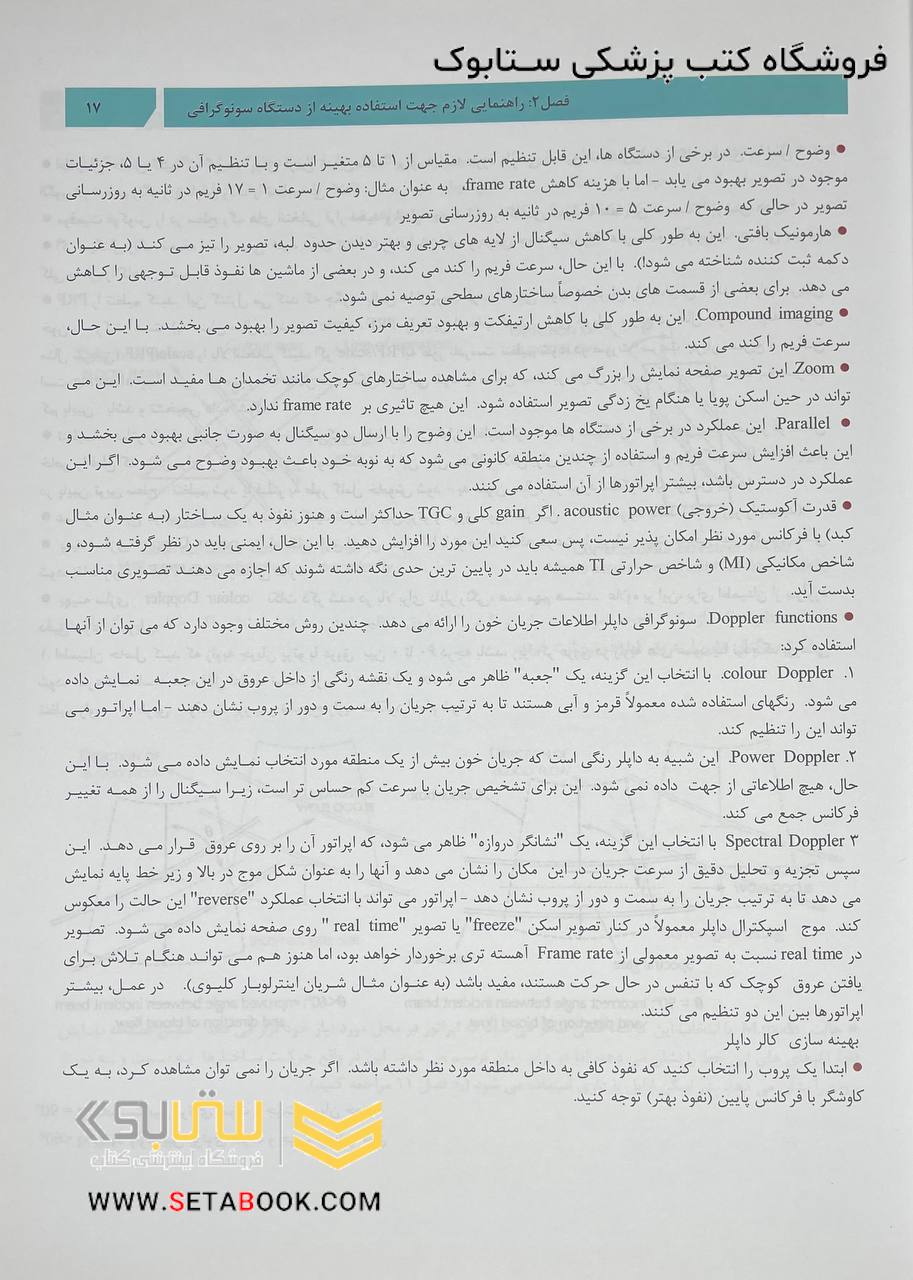 فروشگاه کتب پزشکی ستابوک
فصل۲: راهنمایی لازم جهت استفاده بهینه از دستگاه سونوگرافی
۱۷
● وضوح / سرعت. در برخی از دستگاه ها، این قابل تنظیم است. مقیاس از ۱ تا ۵ متغیر است و با تنظیم آن در ۴ یا ۵، جزئیات
موجود در تصویر بهبود می یابد - اما با هزینه کاهش frame rate، به عنوان مثال: وضوح / سرعت ۱ = ۱۷ فریم در ثانیه به روزرسانی
تصویر در حالی که وضوح / سرعت ۵ = ۱۰ فریم در ثانیه به روزرسانی تصویر
● هارمونیک بافتی. این به طور کلی با کاهش سیگنال از لایه های چربی و بهتر دیدن حدود لبه، تصویر را تیز می کند (به عنوان
دکمه ثبت کننده شناخته می شود!). با این حال، سرعت فریم را کند می کند، و در بعضی از ماشین ها نفوذ قابل توجهی را کاهش
می دهد. برای بعضی از قسمت های بدن خصوصاً ساختارهای سطحی توصیه نمی شود.
● Compound imaging. این به طور کلی با کاهش ارتیفکت و بهبود تعریف مرز، کیفیت تصویر را بهبود می بخشد. با این حال،
سرعت فریم را کند می کند.
● Zoom. این تصویر صفحه نمایش را بزرگ می کند، که برای مشاهده ساختارهای کوچک مانند تخمدان ها مفید است. این می
تواند در حین اسکن پویا یا هنگام یخ زدگی تصویر استفاده شود. این هیچ تاثیری بر frame rate ندارد.
● Parallel. این عملکرد در برخی از دستگاه ها موجود است. این وضوح را با ارسال دو سیگنال به صورت جانبی بهبود می بخشد و
این باعث افزایش سرعت فریم و استفاده از چندین منطقه کانونی می شود که به نوبه خود باعث بهبود وضوح می شود. اگر این
عملکرد در دسترس باشد، بیشتر اپراتورها از آن استفاده می کنند.
● قدرت آکوستیک (خروجی) acoustic power . اگر gain کلی و TGC حداکثر است و هنوز نفوذ به یک ساختار (به عنوان مثال
کبد) با فرکانس مورد نظر امکان پذیر نیست، پس سعی کنید این مورد را افزایش دهید. با این حال، ایمنی باید در نظر گرفته شود، و
شاخص مکانیکی (MI) و شاخص حرارتی TI همیشه باید در پایین ترین حدی نگه داشته شوند که اجازه می دهند تصویری مناسب
بدست آید.
● Doppler functions. سونوگرافی داپلر اطلاعات جریان خون را ارائه می دهد. چندین روش مختلف وجود دارد که می توان از آنها
استفاده کرد:
۱. colour Doppler. با انتخاب این گزینه، یک "جعبه" ظاهر می شود و یک نقشه رنگی از داخل عروق در این جعبه نمایش داده
می شود. رنگهای استفاده شده معمولاً قرمز و آبی هستند تا به ترتیب جریان را به سمت و دور از پروب نشان دهند - اما اپراتور می
تواند این را تنظیم کند.
۲. Power Doppler. این شبیه به داپلر رنگی است که جریان خون بیش از یک منطقه مورد انتخاب نمایش داده می شود. با این
حال، هیچ اطلاعاتی از جهت داده نمی شود. این برای تشخیص جریان با سرعت کم حساس تر است، زیرا سیگنال را از همه تغییر
فرکانس جمع می کند.
۳ Spectral Doppler با انتخاب این گزینه، یک "نشانگر دروازه" ظاهر می شود، که اپراتور آن را بر روی عروق قرار می دهد. این
سپس تجزیه و تحلیل دقیق از سرعت جریان در این مکان را نشان می دهد و آنها را به عنوان شکل موج در بالا و زیر خط پایه نمایش
می دهد تا به ترتیب جریان را به سمت و دور از پروب نشان دهد - اپراتور می تواند با انتخاب عملکرد "reverse" این حالت را معکوس
کند. موج اسپکترال داپلر معمولاً در کنار تصویر اسکن "freeze" یا تصویر "real time " روی صفحه نمایش داده می شود. تصویر
در real time نسبت به تصویر معمولی از Frame rate آهسته تری برخوردار خواهد بود، اما هنوز هم می تواند هنگام تلاش برای
یافتن عروق کوچک که با تنفس در حال حرکت هستند، مفید باشد (به عنوان مثال شریان اینترلوبار کلیوی). در عمل، بیشتر
اپراتورها بین این دو تنظیم می کنند.
بهینه سازی کالر داپلر
● ابتدا یک پروب را انتخاب کنید که نفوذ کافی به داخل منطقه مورد نظر داشته باشد. اگر جریان را نمی توان مشاهده کرد، به یک
کاوشگر با فرکانس پایین (نفوذ بهتر) توجه کنید.
ستابوک
فروشگاه اینترنتی کتاب
WWW.SETABOOK.COM